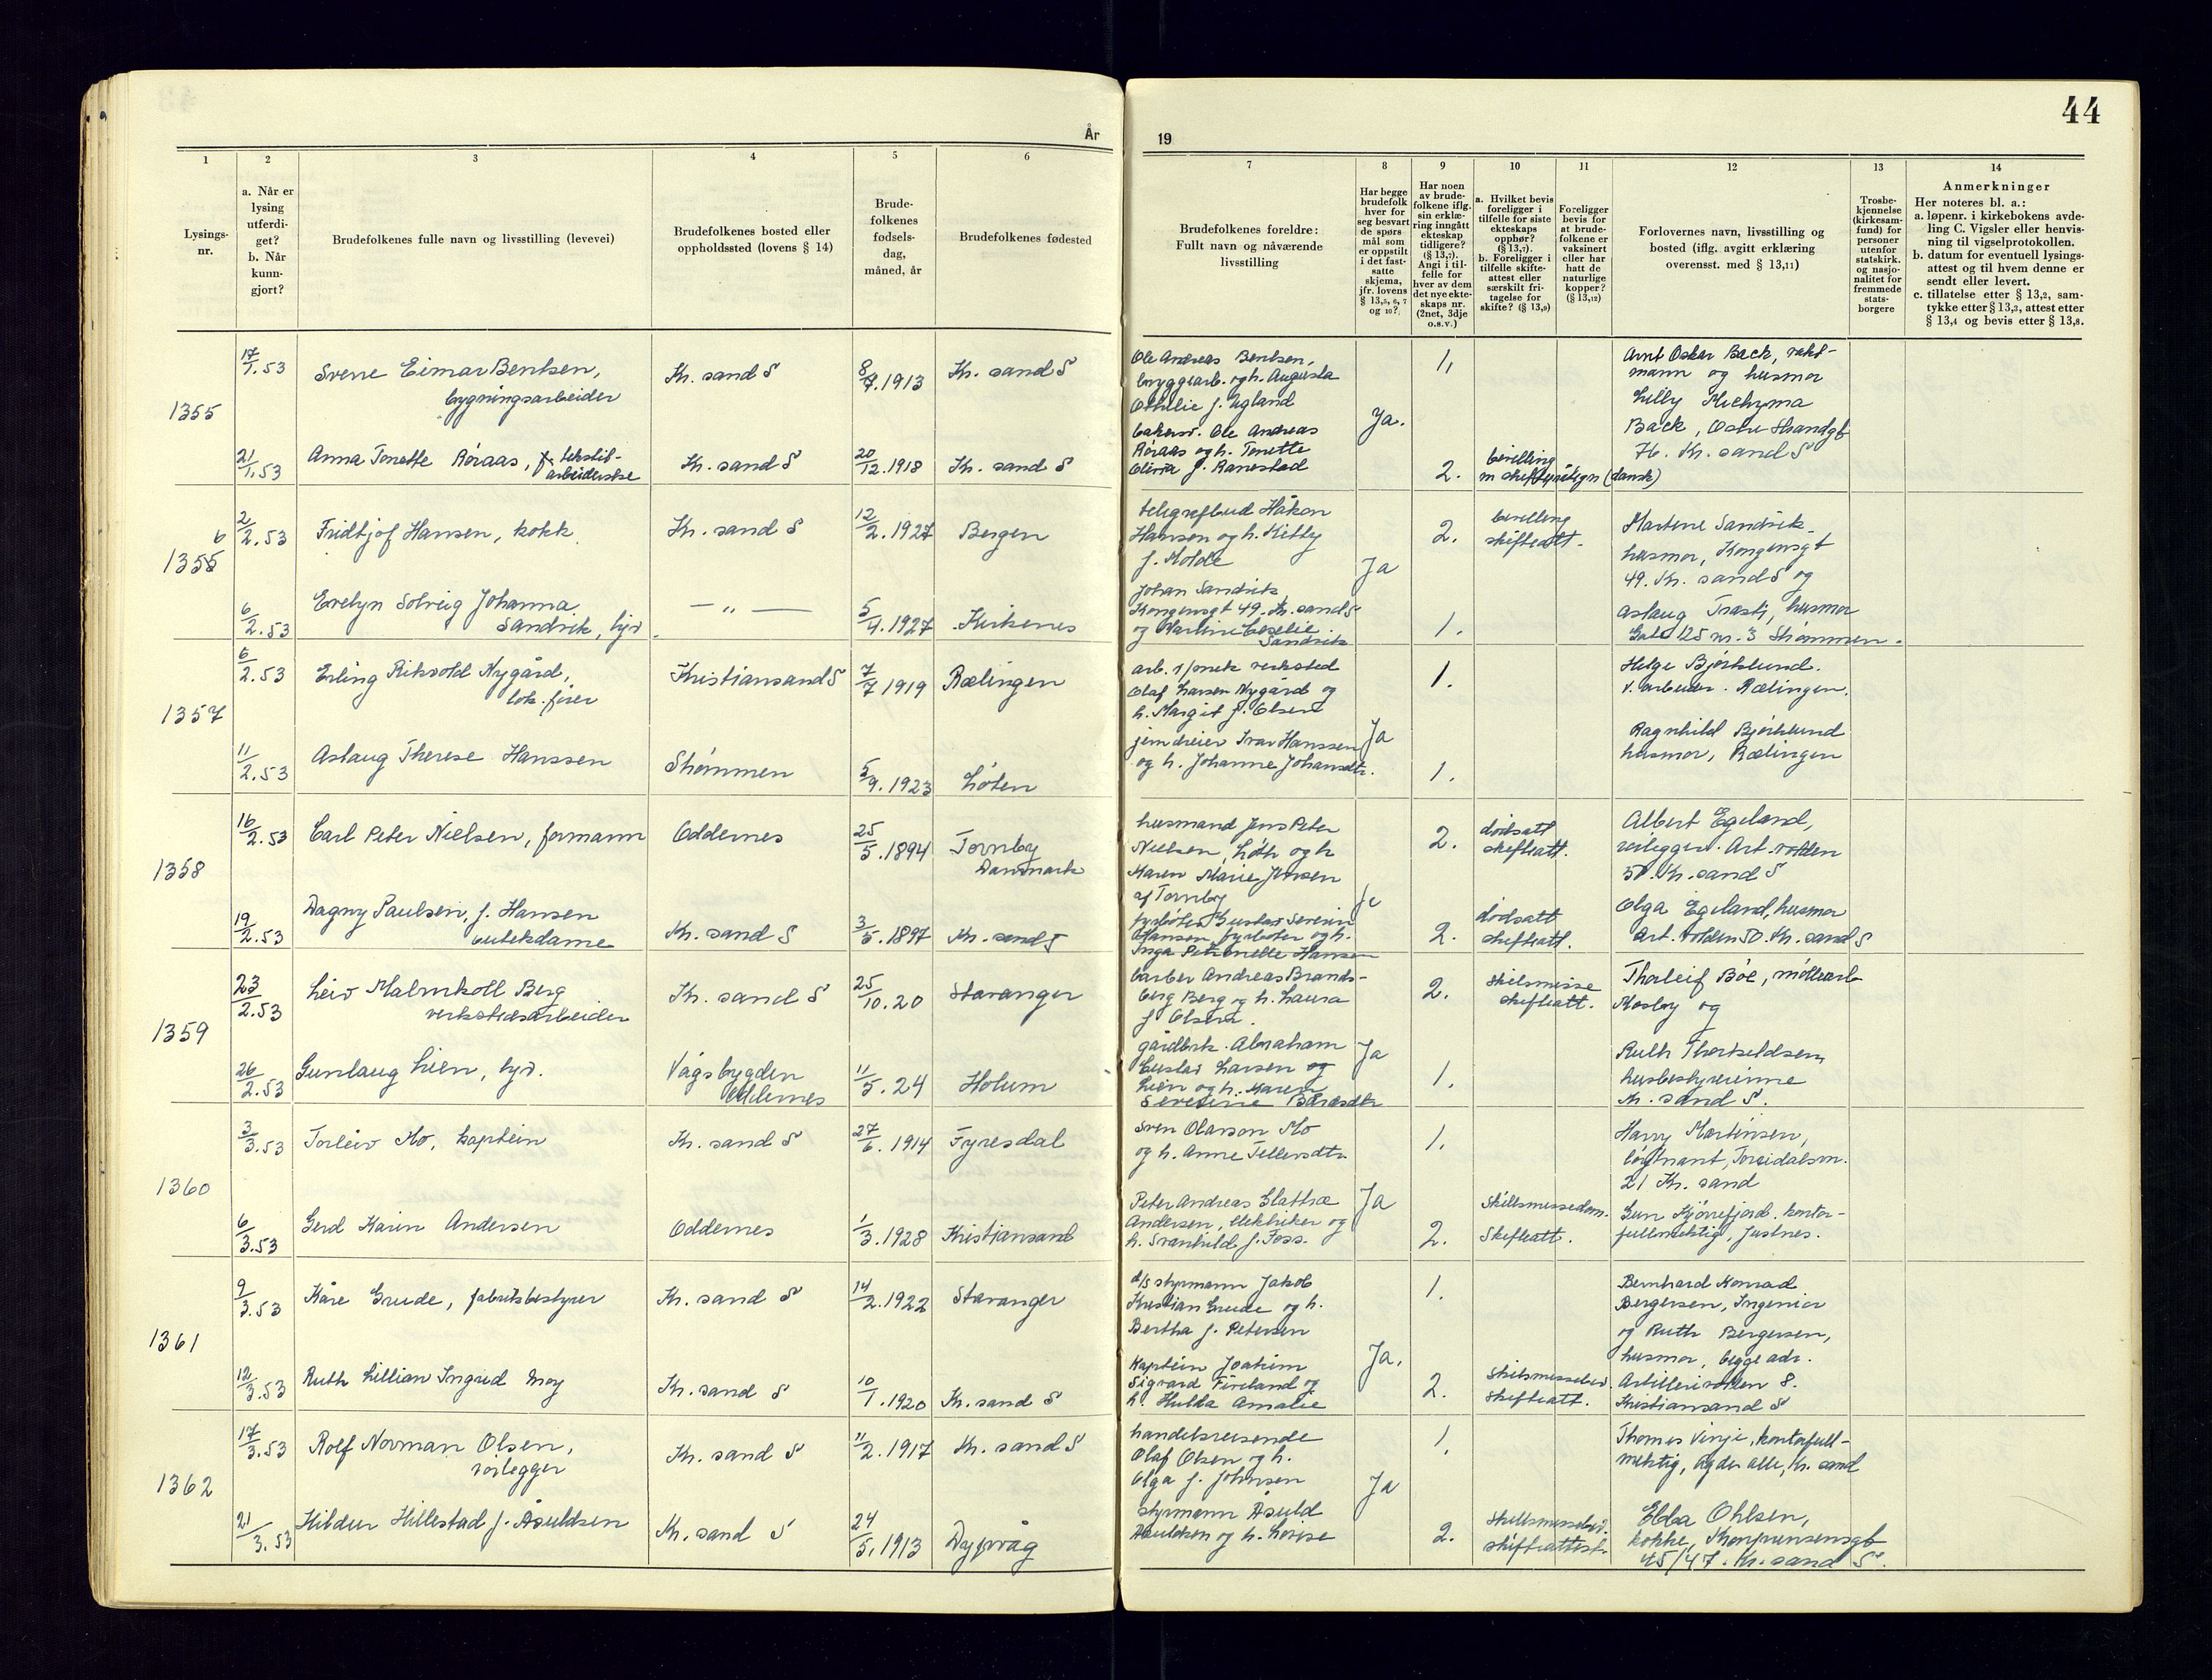 44
År
19
1
2
3
4
5
6
7
8
9
10
11
12
13
14
Lysings-
nr.
a. Når er
lysing
utferdi-
get?
b. Når
kunn-
gjort?
Brudefolkenes fulle navn og livsstilling (levevei)
Brudefolkenes bosted eller
oppholdssted (lovens § 14)
Brude-
folkenes
fødsels-
dag,
måned, år
Brudefolkenes fødested
Brudefolkenes foreldre:
Fullt navn og nåværende
livsstilling
Har begge
brudefolk
hver for
seg besvart
de spørs
mål som
er oppstilt
i det fast-
satte
skjema,
jfr. lovens
§ 13,5, 6, 7
og 10?
Har noen
av brude-
folkene iflg.
sin erklæ-
ring inngått
ekteskap
tidligere?
(§ 13,7).
Angi i til-
felle for
hver av dem
det nye ekte-
skaps nr.
(2net, 3dje
o.s.v.)
a. Hvilket bevis
foreligger i
tilfelle for siste
ekteskaps
opphør?
(§ 13,7)
b. Foreligger i
tilfelle skifte-
attest eller
særskilt fri-
tagelse for
skifte? (§ 13,9)
Foreligger
bevis for
at brude-
folkene er
vaksinert
eller har
hatt de
naturlige
kopper?
(§ 13,12)
Forlovernes navn, livsstilling og
bosted (iflg. avgitt erklæring
overensst. med § 13,11)
Trosbe-
kjennelse
(kirkesam-
fund) for
personer
utenfor
statskirk.
og nasjo-
nalitet for
fremmede
stats-
borgere
Anmerkninger
Her noteres bl. a.:
a. løpenr. i kirkebokens avde-
ling C. Vigsler eller henvis-
ning til vigselprotokollen.
b. datum for eventuell lysings-
attest og til hvem denne er
sendt eller levert.
c. tillatelse etter § 13,2, sam-
tykke etter § 13,3, attest etter
§ 13,4 og bevis etter § 13,8.
1355
17/1.53 Sverre Eimar Bentsen, Kr. sand S 8/7.1913 Kr. sand S
bygningsarbeider
Ole Andreas Bentsen,
bryggearb. og h. Augusta
Othilie f. Ugland
1.
Arnt Oskar Back, vakt-
mann og husmor
Lilly
Back, Østre Strandgt
76. Kr. sand S
Ja.
21/1.53 Anna Tonette Røraas, f. tekstil- Kr. sand S 20/12.1918 Kr. sand S
arbeiderske
Ole Andreas
Røraas og h. Tonette
Olivia f. Ranestad
2. bevilling
(dansk)
1356
2/2.53 Fridtjof Hansen, kokk Kr. sand S 12/2.1927 Bergen
telegrafbud Håkon
Hansen og h. Kitty
f. Molde
Ja
2. bevilling
skifteatt.
Martine Sandvik
husmor, Kongensgt
49. Kr. sand S og
6/2.53 Evelyn Solveig Johanna — " — 5/4.1927 Kirkenes
Sandvik, hjv.
Johan Sandvik,
Kongensgt 49. Kr. sand S
og Martine
Sandvik
1.
Aslaug Trasti, husmor
Gate 125 nr. 3 Strømmen.
1357
6/2.53 Erling Rikvold Nygård, Kristiansand S 7/7 1919 Rælingen
lok. fører
arb. v/mek verksted
Olaf Larsen Nygård og
h. Margit f. Olsen
1.
Helge Bjørklund.
v. arbeider. Rælingen.
Ja
11/2.53 Aslaug Therese Hanssen Strømmen 5/9.1923 Løten
jerndreier Ivar Hanssen
og h. Johanne Johansdtr.
1.
Ragnhild Bjørklund
husmor, Rælingen
1358
16/2.53 Carl Peter Nielsen, formann Oddernes 25/5.1894 Tornby
Danmark
husmand Jens Peter
Nielsen, Løth og h
Maren Marie Jensen
af Tornby
Ja
2. dødsatt
skifteatt.
Albert Egeland,
rørlegger. Art. volden
50. Kr. sand S
19/2.53 Dagny Paulsen, f. Hansen Kr. sand S 3/5.1897 Kr. sand S
butikkdame
fyrbøter Gustav Severin
Hansen, fyrbøter og h.
Inga Petronelle Hansen
2. dødsatt
skifteatt.
Olga Egeland, husmor
Art. volden 50. Kr. sand S
1359
23/2.53 Leiv Malmkoll Berg Kr. sand S 25/10.20 Stavanger
verkstedsarbeider
barber Andreas Brands-
berg Berg og h. Laura
f. Olsen.
2. Skilsmisse
skifteatt.
Thorleif Bøe, møllearb
Mosby og
Ja
26/2.53 Gunlaug Lien, hjv. Vågsbygden 11/5.24 Holum
Oddernes
gårdbrk. Abraham
Gustav Larsen og
Lien og h. Maren
Severine
1.
Ruth Thorkeldsen,
husbestyrerinne
Kr. sand S.
1360
3/3.53 Torleiv Mo, kaptein Kr. sand S 27/6.1914 Fyresdal
Sven Olavson Mo
og h. Anne Tellevsdtr.
1.
Harry Martinsen,
løytnant, Torridalsvn.
21 Kr. sand
Ja
6/3.53 Gerd Karin Andersen Oddernes 1/3.1928 Kristiansand
Peter Andreas Glattre
Andersen, elektriker og
h. Svanhild f. Foss.
2. Skilsmissedom.
Skifteatt.
Gun Kjørrefjord. kontor-
fullmektig, Justnes.
1361
9/3.53 Kåre Grude, fabrikkbestyrer Kr. sand S 14/2.1922 Stavanger
d/s styrmann Jakob
Kristian Grude og h.
Bertha f. Petersen
1.
Bernhard Konrad
Bergersen, Ingeniør
og Ruth Bergersen,
husmor, begge adr.
Artillerivollen 8.
Kristiansand S
Ja.
12/3.53 Ruth Lillian Ingrid Moy Kr. sand S 10/1.1920 Kr. sand S
Kaptein Joakim
Sigvard Fireland og
h. Hulda Amalie
2. Skilsmissebev.
Skifteatt.
1362
17/3.53 Rolf Norman Olsen, Kr. sand S 11/2.1917 Kr. sand S
rørlegger
handelsreisende
Olaf Olsen og h.
Olga f. Johnsen
1.
Thomes Vinje, kontorfull-
mektig, Agder alle, Kr. sand
Ja
21/3.53 Hildur Hillestad f. Åsuldsen Kr. sand S 24/5.1913 Dypvåg
styrmann Åsuld
Åsuldsen og h. Lovise
2. Skilsmissebev.
skifteattest.
Ebba Ohlsen,
kokke,
45/47. Kr. sand S.